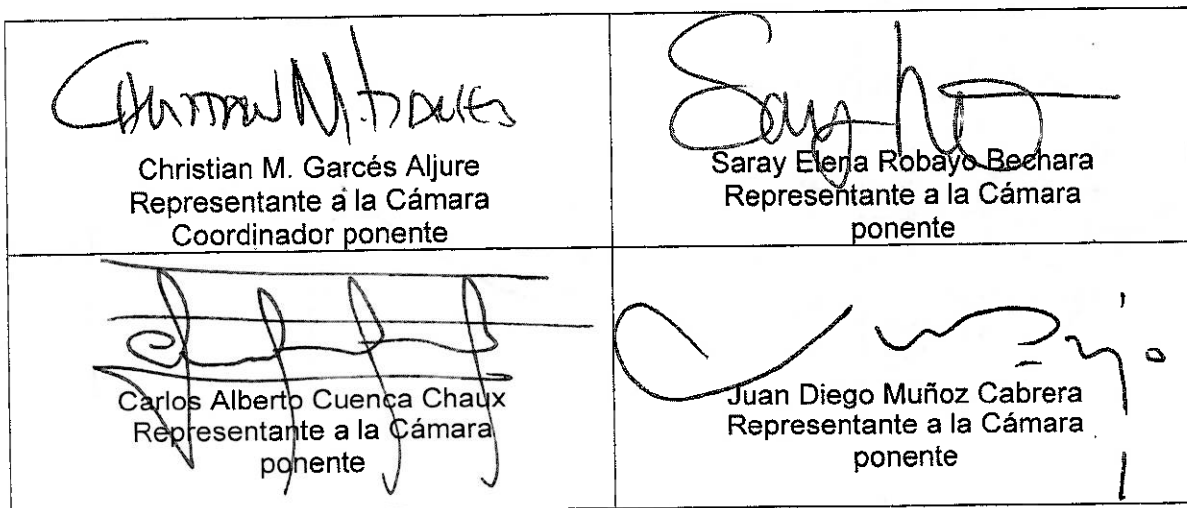 Christian M. Garcés Aljure
Representante a la Cámara
Coordinador ponente
Saray Elena Robayo Bechara
Representante a la Cámara
ponente
Carlos Alberto Cuenca Chaux
Representante a la Cámara
ponente
Juan Diego Muñoz Cabrera
Representante a la Cámara
ponente